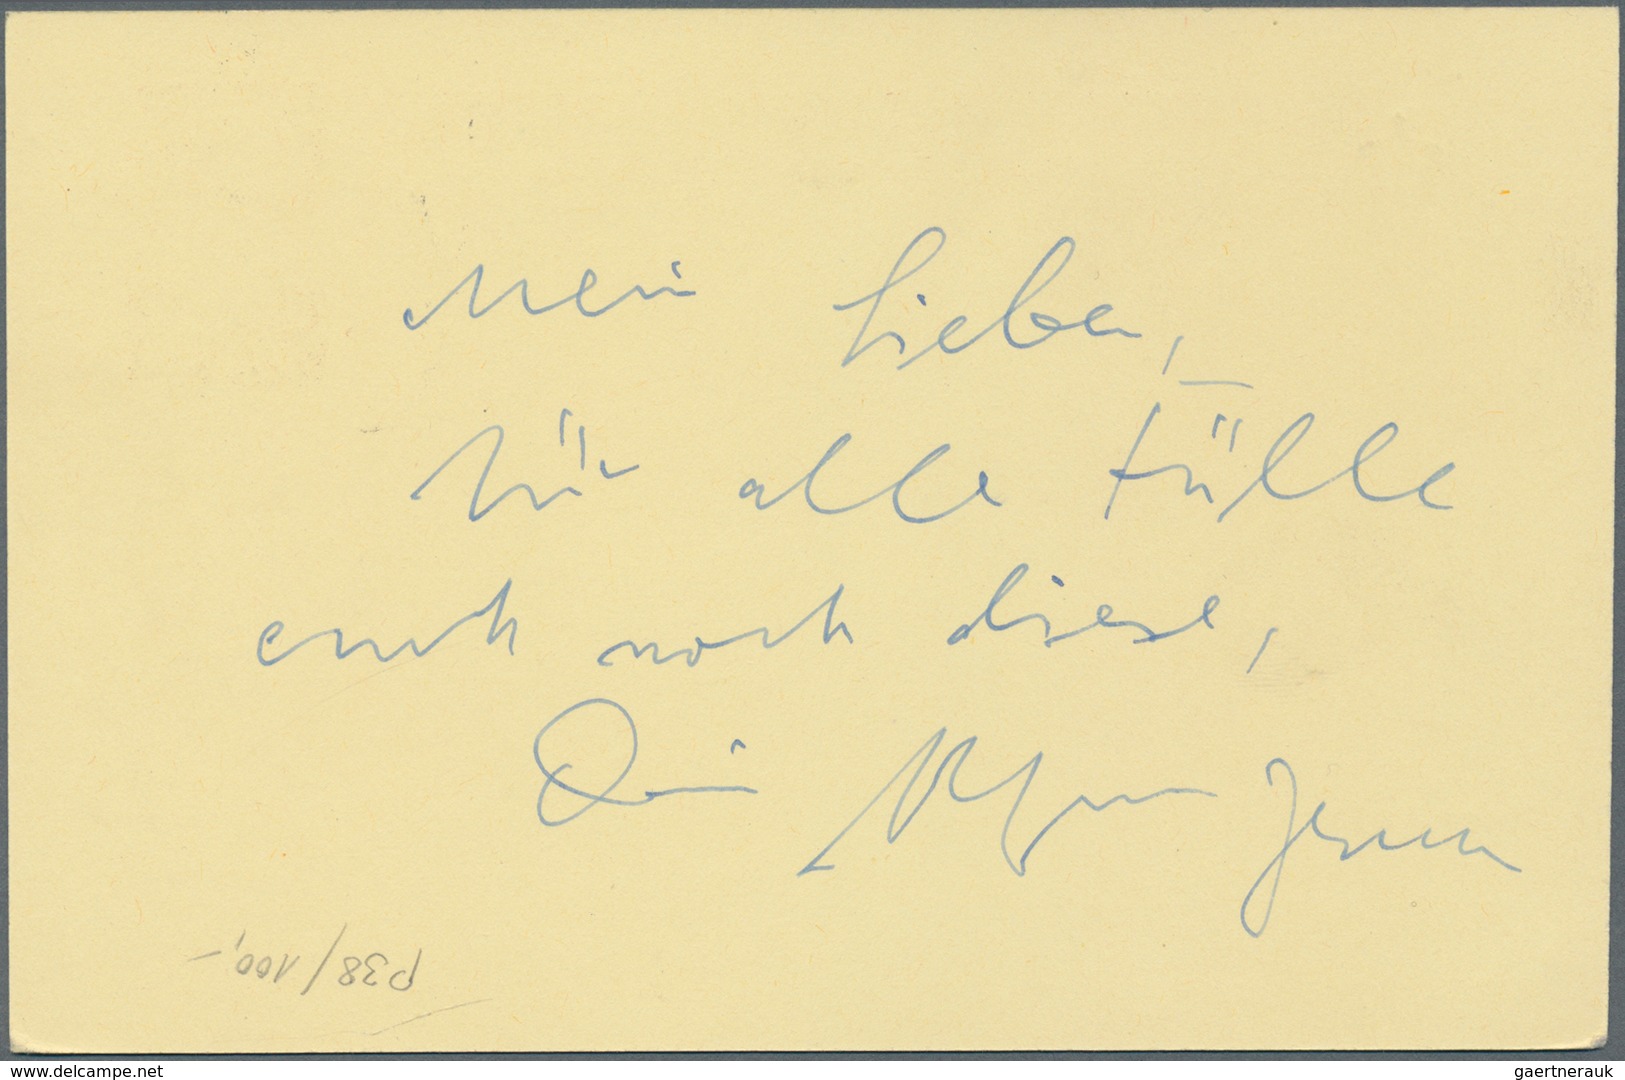 Mein Lieber,
für alle Fälle
auch noch diese,
Dein
P38/100,-
delcampe.net
gaertnerauk